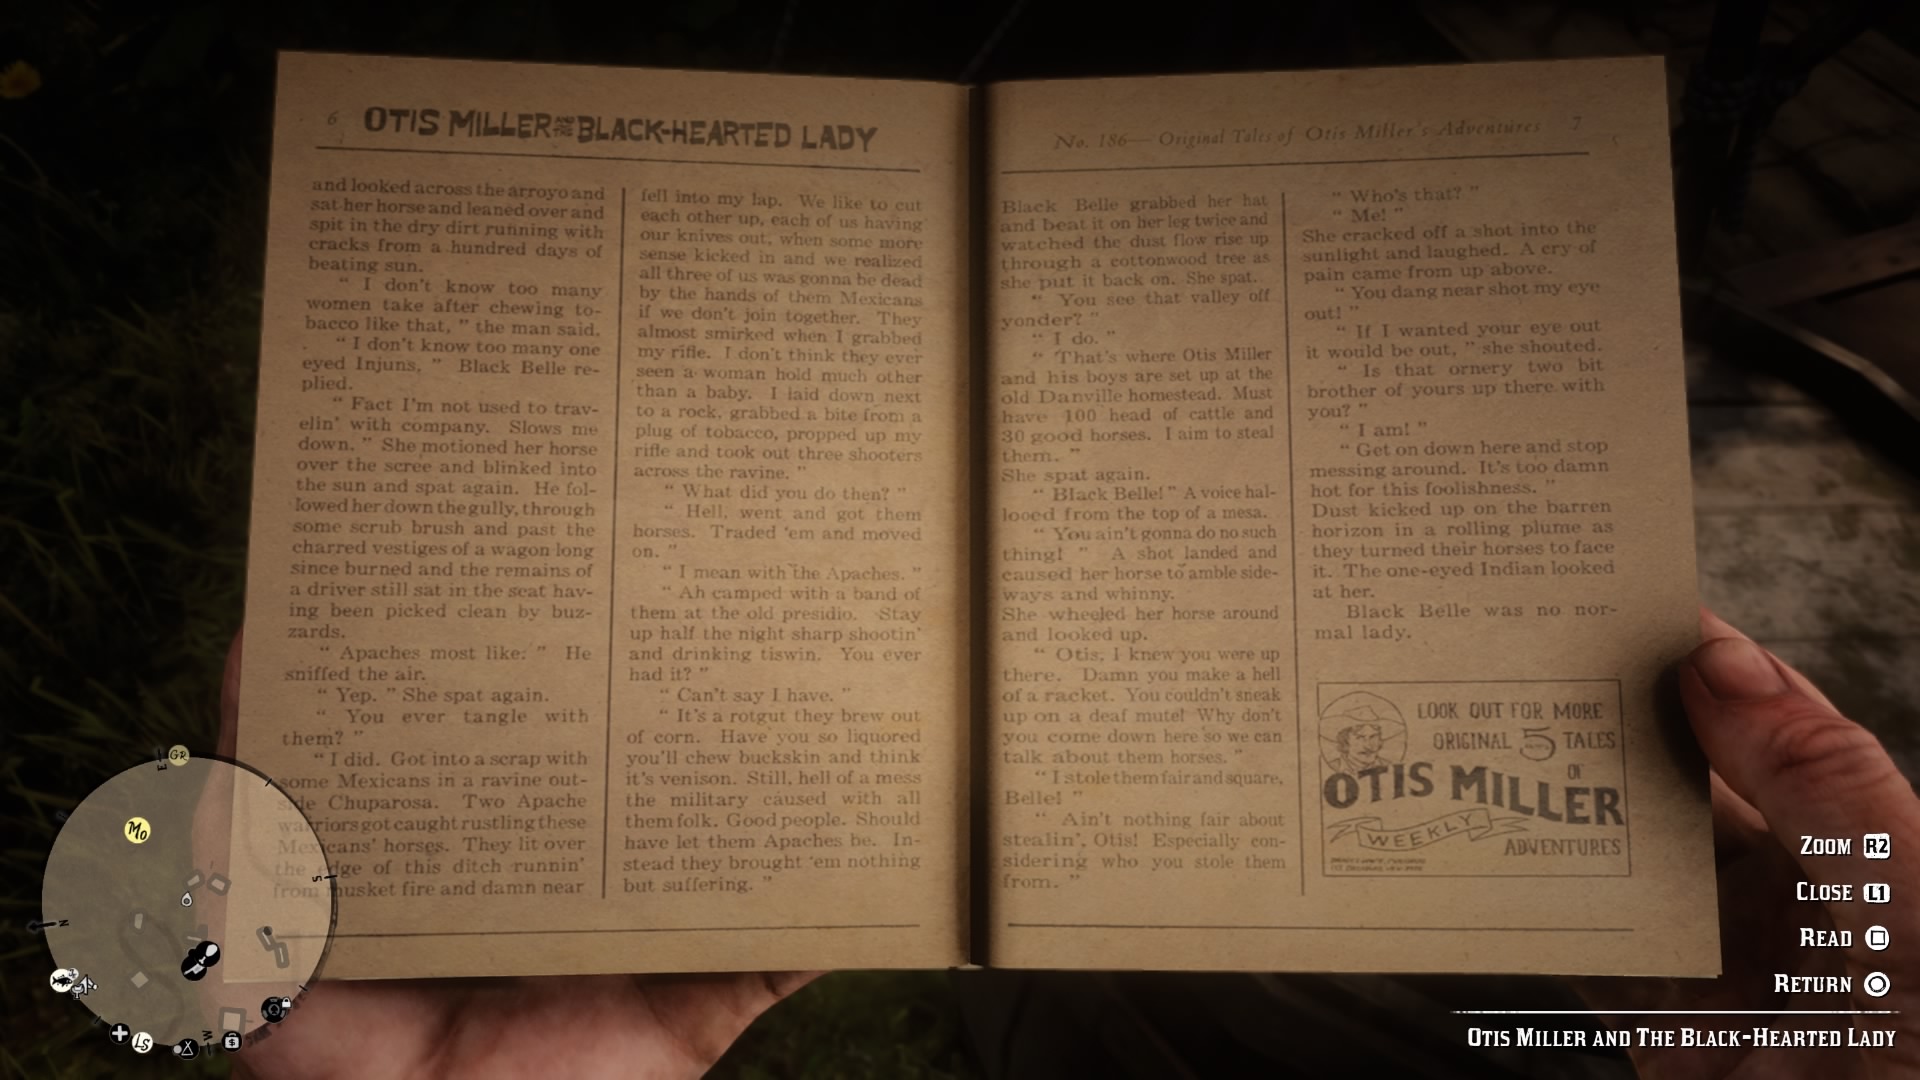 6 OTIS MILLER AND THE BLACK-HEARTED LADY
and looked across the arroyo and
sat her horse and leaned over and
spit in the dry dirt running with
cracks from a hundred days of
beating sun.
“ I don't know too many
women take after chewing to-
bacco like that, ” the man said.
“ I don't know too many one
eyed Injuns, ” Black Belle re-
plied.
“ Fact I'm not used to trav-
elin' with company. Slows me
down. ” She motioned her horse
over the scree and blinked into
the sun and spat again. He fol-
lowed her down the gully, through
some scrub brush and past the
charred vestiges of a wagon long
since burned and the remains of
a driver still sat in the seat hav-
ing been picked clean by buz-
zards.
“ Apaches most like. ” He
sniffed the air.
“ Yep. ” She spat again.
“ You ever tangle with
them? ”
“ I did. Got into a scrap with
some Mexicans in a ravine out-
side Chuparosa. Two Apache
warriors got caught rustling these
Mexicans' horses. They lit over
the edge of this ditch runnin'
from musket fire and damn near
fell into my lap. We like to cut
each other up, each of us having
our knives out, when some more
sense kicked in and we realized
all three of us was gonna be dead
by the hands of them Mexicans
if we don't join together. They
almost smirked when I grabbed
my rifle. I don't think they ever
seen a woman hold much other
than a baby. I laid down next
to a rock, grabbed a bite from a
plug of tobacco, propped up my
rifle and took out three shooters
across the ravine. ”
“ What did you do then? ”
“ Hell, went and got them
horses. Traded 'em and moved
on. ”
“ I mean with the Apaches. ”
“ Ah camped with a band of
them at the old presidio. Stay
up half the night sharp shootin'
and drinking tiswin. You ever
had it? ”
“ Can't say I have. ”
“ It's a rotgut they brew out
of corn. Have you so liquored
you'll chew buckskin and think
it's venison. Still, hell of a mess
the military caused with all
them folk. Good people. Should
have let them Apaches be. In-
stead they brought 'em nothing
but suffering. ”
No. 186— Original Tales of Otis Miller's Adventures 7
Black Belle grabbed her hat
and beat it on her leg twice and
watched the dust flow rise up
through a cottonwood tree as
she put it back on. She spat.
“ You see that valley off
yonder? ”
“ I do. ”
“ That's where Otis Miller
and his boys are set up at the
old Danville homestead. Must
have 100 head of cattle and
30 good horses. I aim to steal
them. ”
She spat again.
“ Black Belle! ” A voice hal-
looed from the top of a mesa.
“ You ain't gonna do no such
thing! ” A shot landed and
caused her horse to amble side-
ways and whinny.
She wheeled her horse around
and looked up.
“ Otis, I knew you were up
there. Damn you make a hell
of a racket. You couldn't sneak
up on a deaf mute! Why don't
you come down here so we can
talk about them horses. ”
“ I stole them fair and square,
Belle! ”
“ Ain't nothing fair about
stealin', Otis! Especially con-
sidering who you stole them
from. ”
“ Who's that? ”
“ Me! ”
She cracked off a shot into the
sunlight and laughed. A cry of
pain came from up above.
“ You dang near shot my eye
out! ”
“ If I wanted your eye out
it would be out, ” she shouted.
“ Is that ornery two bit
brother of yours up there with
you? ”
“ I am! ”
“ Get on down here and stop
messing around. It's too damn
hot for this foolishness. ”
Dust kicked up on the barren
horizon in a rolling plume as
they turned their horses to face
it. The one-eyed Indian looked
at her.
Black Belle was no nor-
mal lady.
LOOK OUT FOR MORE
ORIGINAL 5 TALES
OF
OTIS MILLER
WEEKLY
ADVENTURES
GR
E
Mo
S
N
W
LS
ZOOM R2
CLOSE L1
READ
RETURN
OTIS MILLER AND THE BLACK-HEARTED LADY